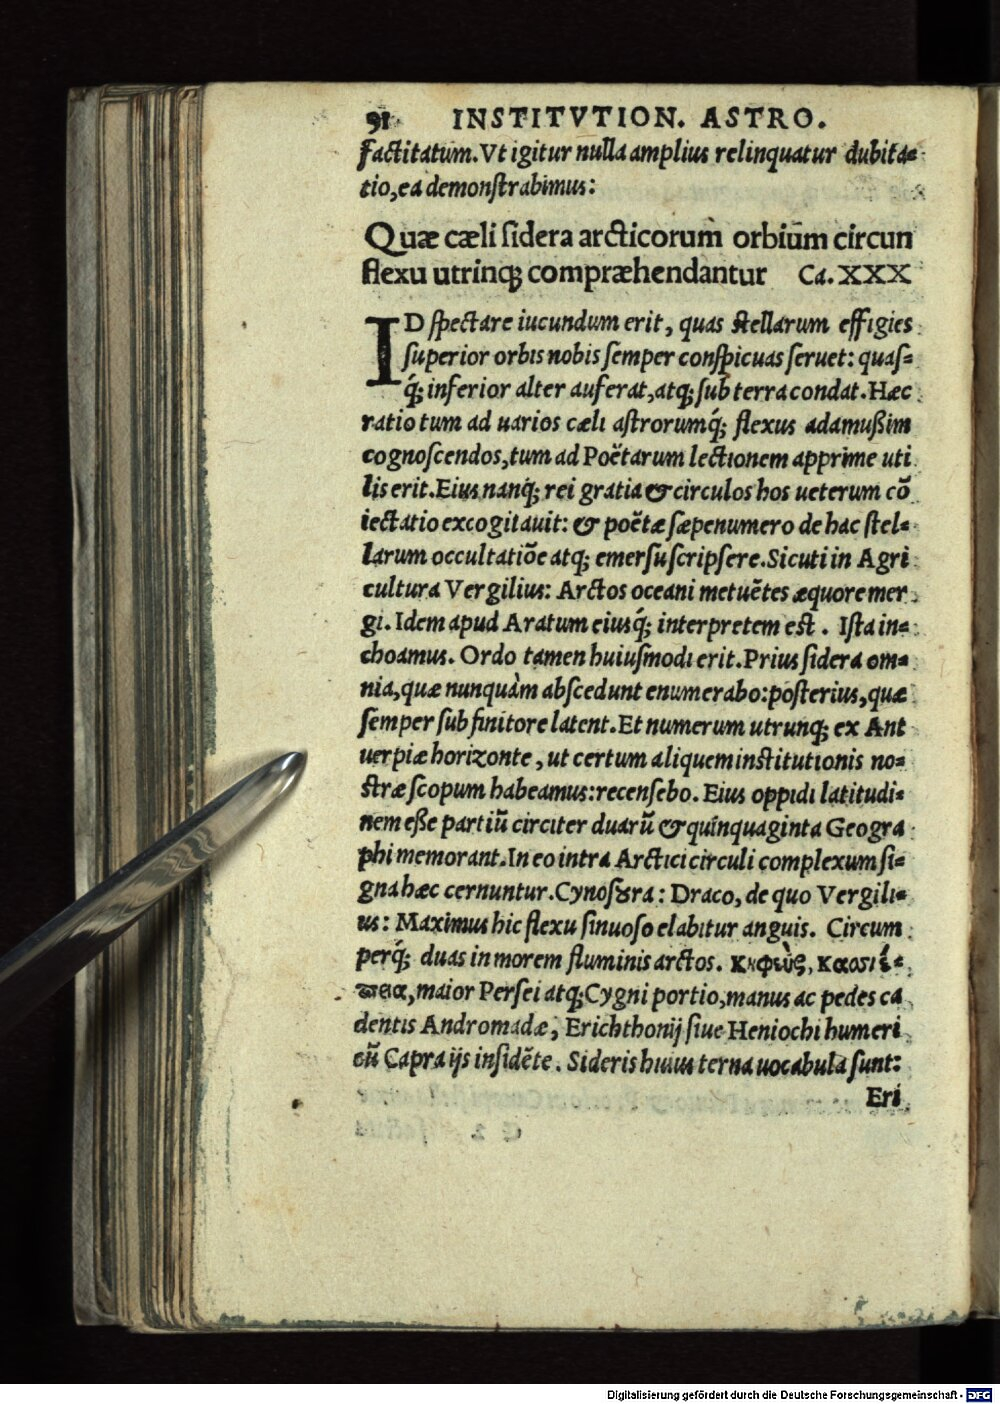 91 INSTITVTION. ASTRO.
factitatum. Vt igitur nulla amplius relinquatur dubita=
tio, ea demonstrabimus:
Quæ cæli sidera arcticorum orbium circun
flexu utrinq; compræhendantur Ca. XXX
ID spectare iucundum erit, quas stellarum effigies
superior orbis nobis semper conspicuas seruet: quas=
q́; inferior alter auferat, atq; sub terra condat. Hæc
ratio tum ad uarios cæli astrorumq́; flexus adamußim
cognoscendos, tum ad Poëtarum lectionem apprime uti
lis erit. Eius nanq; rei gratia & circulos hos ueterum cō
iectatio excogitauit: & poëtæ sæpenumero de hac stel=
larum occultatiōe atq; emersu scripsere. Sicuti in Agri
cultura Vergilius: Arctos oceani metuētes æquore mer
gi. Idem apud Aratum eiusq́; interpretem est. Ista in=
choamus. Ordo tamen huiusmodi erit. Prius sidera om=
nia, quæ nunquàm abscedunt enumerabo: posterius, quæ
semper sub finitore latent. Et numerum utrunq; ex Ant
uerpiæ horizonte, ut certum aliquem institutionis no=
stræ scopum habeamus: recensebo. Eius oppidi latitudi=
nem eße partiū circiter duarū & quinquaginta Geogra
phi memorant. In eo intra Arctici circuli complexum si=
gna hæc cernuntur. Cynosȣra: Draco, de quo Vergili=
us: Maximus hic flexu sinuoso elabitur anguis. Circum
perq́; duas in morem fluminis arctos. κηφεὺς, κασσιέ=
πεια, maior Persei atq; Cygni portio, manus ac pedes ca
dentis Andromadæ, Erichthonij siue Heniochi humeri
cū Capra ijs insidēte. Sideris huius terna uocabula sunt:
Eri
Digitalisierung gefördert durch die Deutsche Forschungsgemeinschaft - DFG